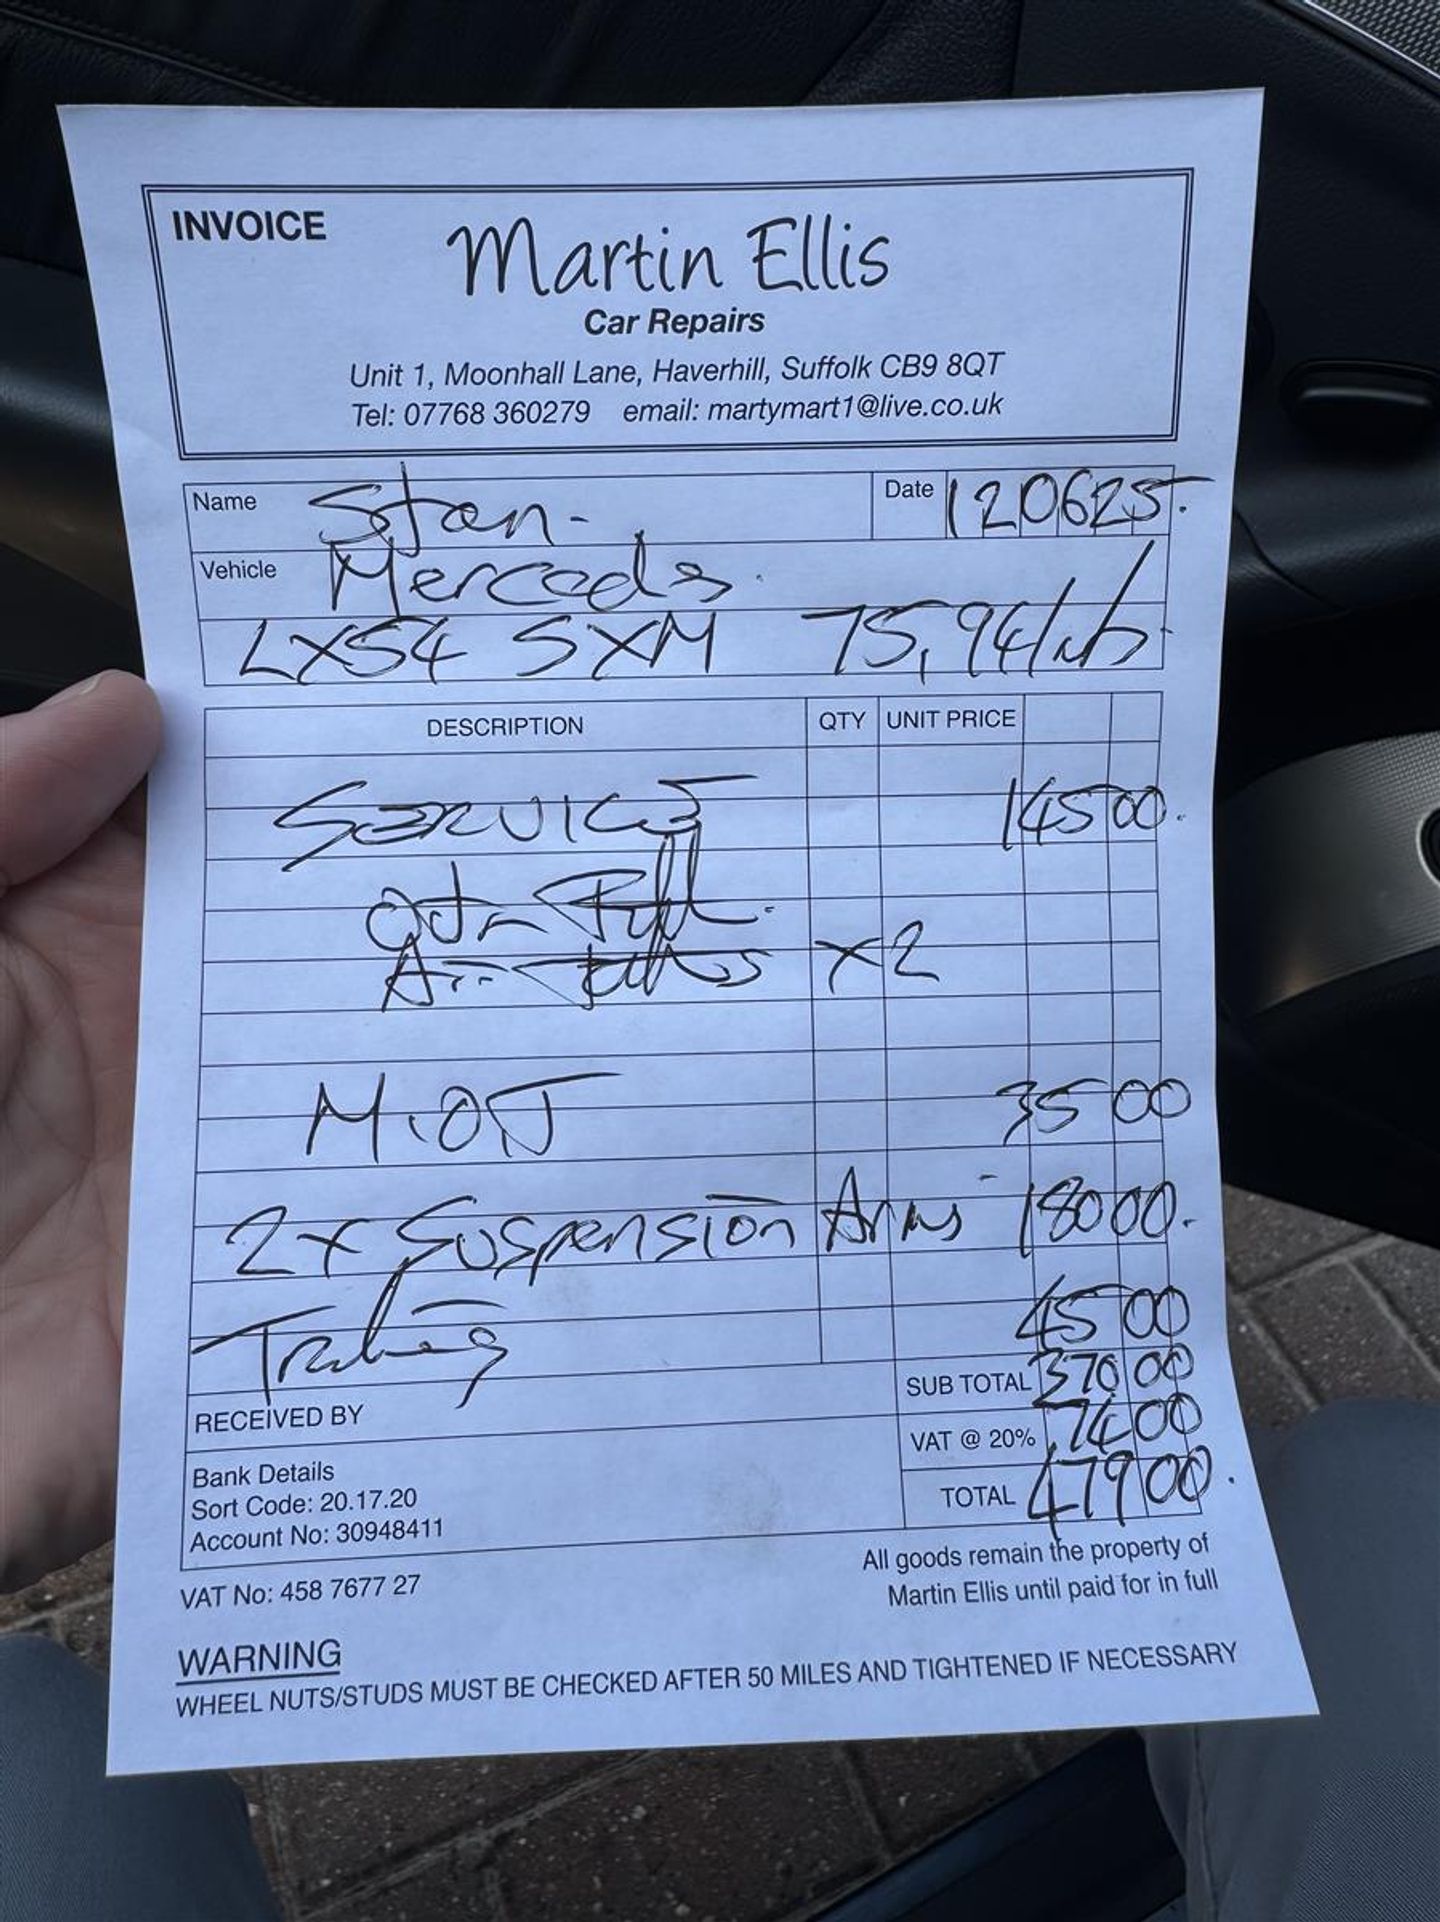 INVOICE
Martin Ellis
Car Repairs
Unit 1, Moonhall Lane, Haverhill, Suffolk CB9 8QT
Tel: 07768 360279 email: martymart1@live.co.uk
Name Stan - Date 120625.
Vehicle Mercedes.
LX54 SXM 75,941
DESCRIPTION QTY UNIT PRICE
SERVICE 145 00.
Air Filters X2
M.OT 35 00
2x Suspension Arms - 180 00.
Tracking 45 00
SUB TOTAL 370 00
RECEIVED BY
VAT @ 20% 74 00
TOTAL 479 00.
Bank Details
Sort Code: 20.17.20
Account No: 30948411
All goods remain the property of
Martin Ellis until paid for in full
VAT No: 458 7677 27
WARNING
WHEEL NUTS/STUDS MUST BE CHECKED AFTER 50 MILES AND TIGHTENED IF NECESSARY